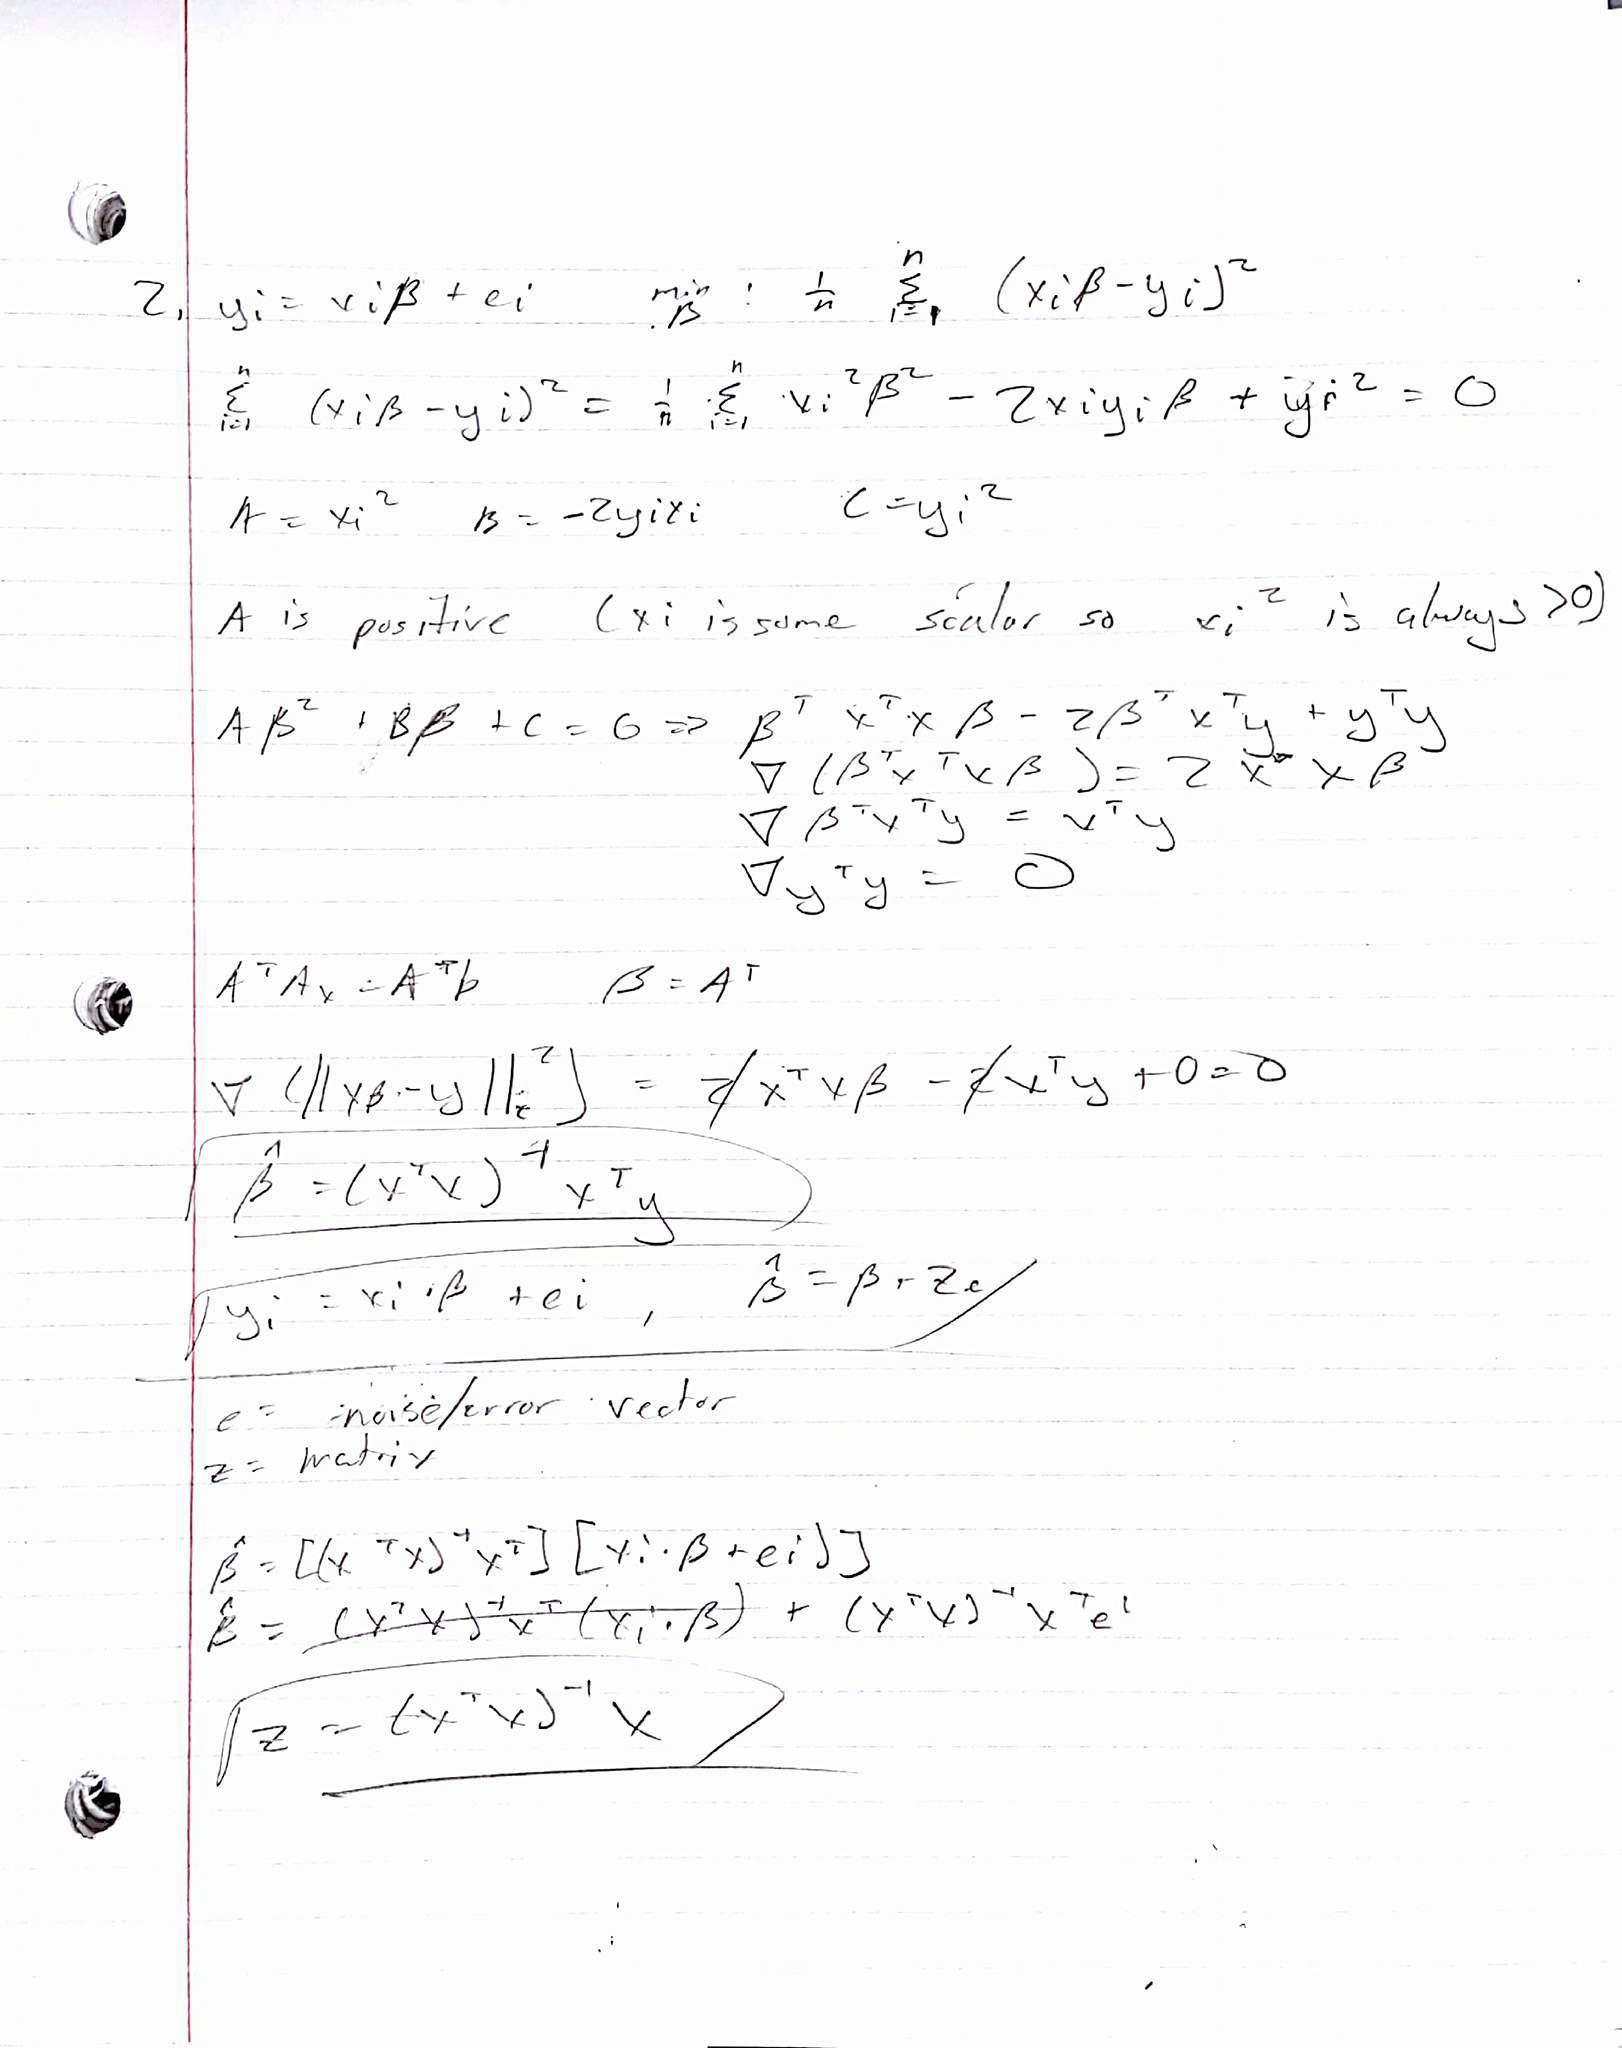 2. yi = xiβ + ei min β : 1/n Σ i=1 n (xiβ - yi)²
Σ i=1 n (xiβ - yi)² = 1/n Σ i=1 n xi²β² - 2xiyiβ + yi² = 0
A = xi² B = -2yixi C = yi²
A is positive (xi is some scalar so xi² is always >0)
Aβ² + Bβ + C = 0 => βᵀxᵀxβ - 2βᵀxᵀy + yᵀy
∇(βᵀxᵀxβ) = 2xᵀxβ
∇βᵀxᵀy = xᵀy
∇yᵀy = 0
AᵀAx = Aᵀb β = Aᵀ
∇(||xβ - y||₂²) = 2xᵀxβ - 2xᵀy + 0 = 0
β̂ = (xᵀx)⁻¹xᵀy
yi = xi·β + ei, β̂ = β + Ze
e = noise/error vector
z = matrix
β̂ = [(xᵀx)⁻¹xᵀ][xi·β + ei)]
β̂ = (xᵀx)⁻¹xᵀ(xi·β) + (xᵀx)⁻¹xᵀei
z = (xᵀx)⁻¹x